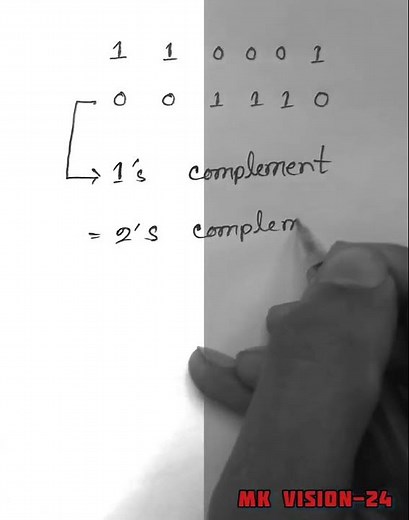 1 1 0 0 0 1
0 0 1 1 1 0
1's complement
= 2's complem
MK VISION-24